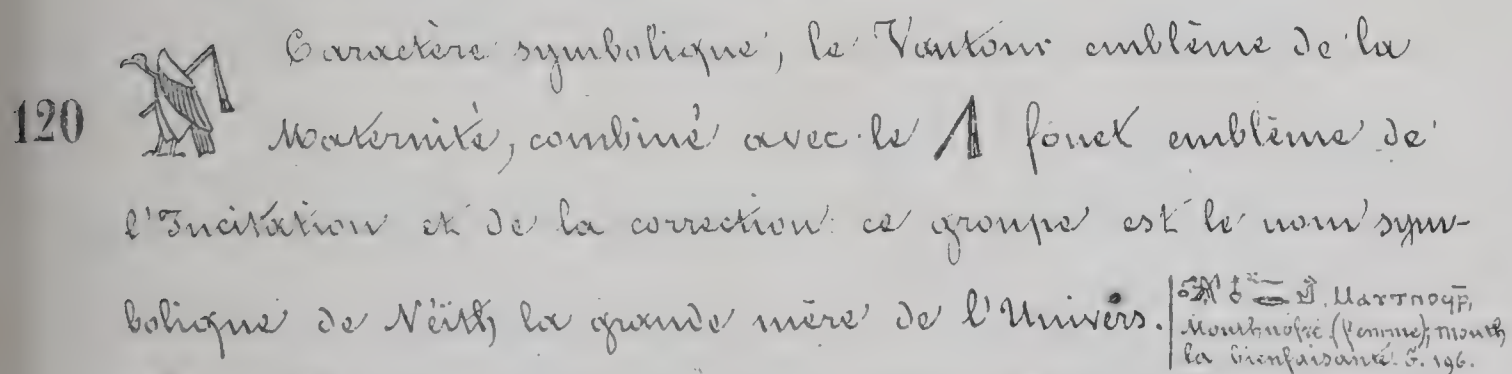 Caractère symbolique, le Vautour emblème de la
120 Maternité, combiné avec le fouet emblème de
l'Incitation et de la correction: ce groupe est le nom sym-
bolique de Néith, la grande mère de l'Univers.
Mouthnofré (femme); Mouth
la bienfaisante. 196.